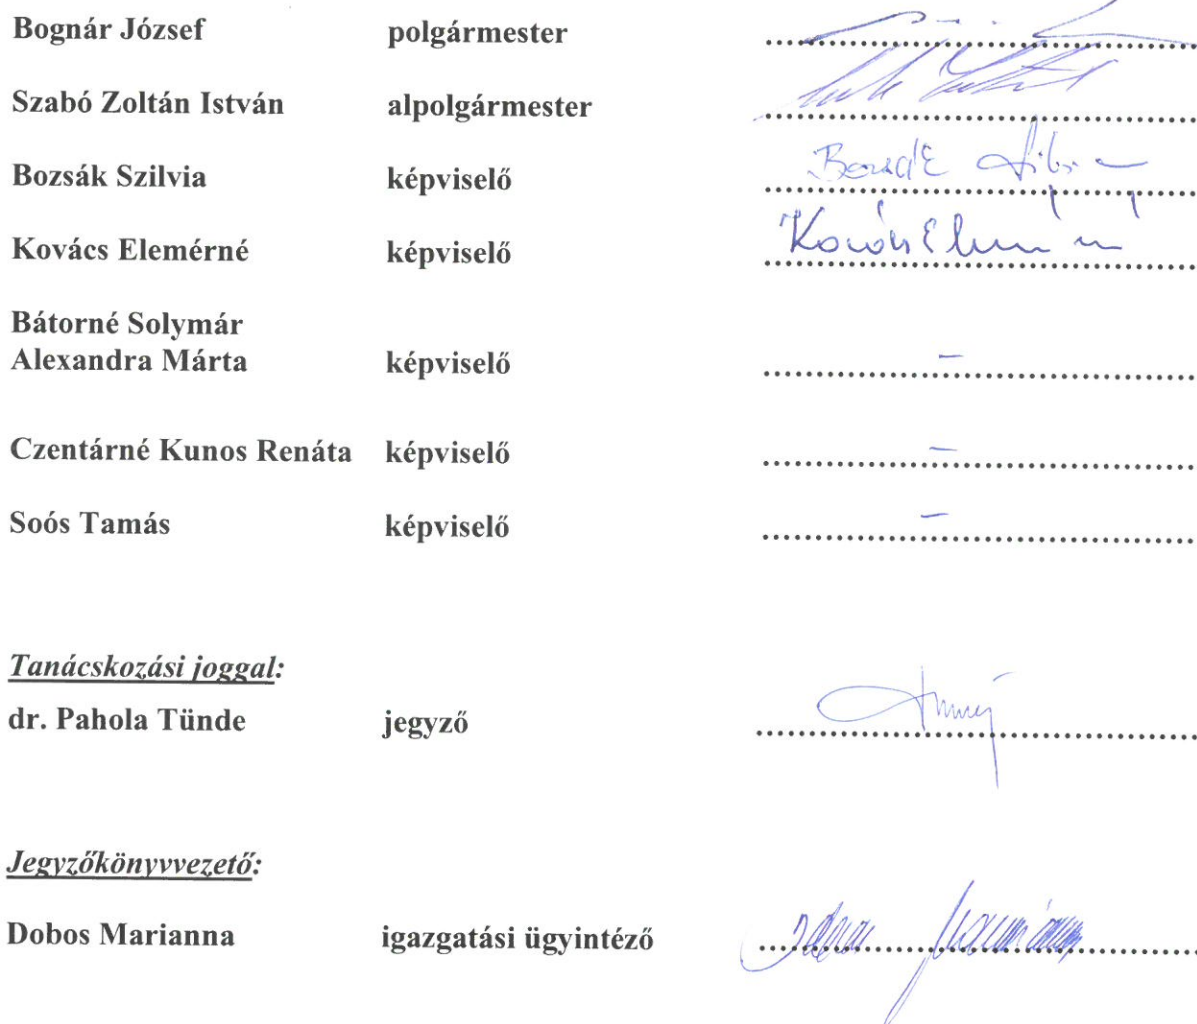 Bognár József polgármester
Szabó Zoltán István alpolgármester
Bozsák Szilvia képviselő Bozsák Szilvia
Kovács Elemérné képviselő Kovács Elemérné
Bátorné Solymár
Alexandra Márta képviselő –
Czentárné Kunos Renáta képviselő –
Soós Tamás képviselő –
Tanácskozási joggal:
dr. Pahola Tünde jegyző
Jegyzőkönyvvezető:
Dobos Marianna igazgatási ügyintéző